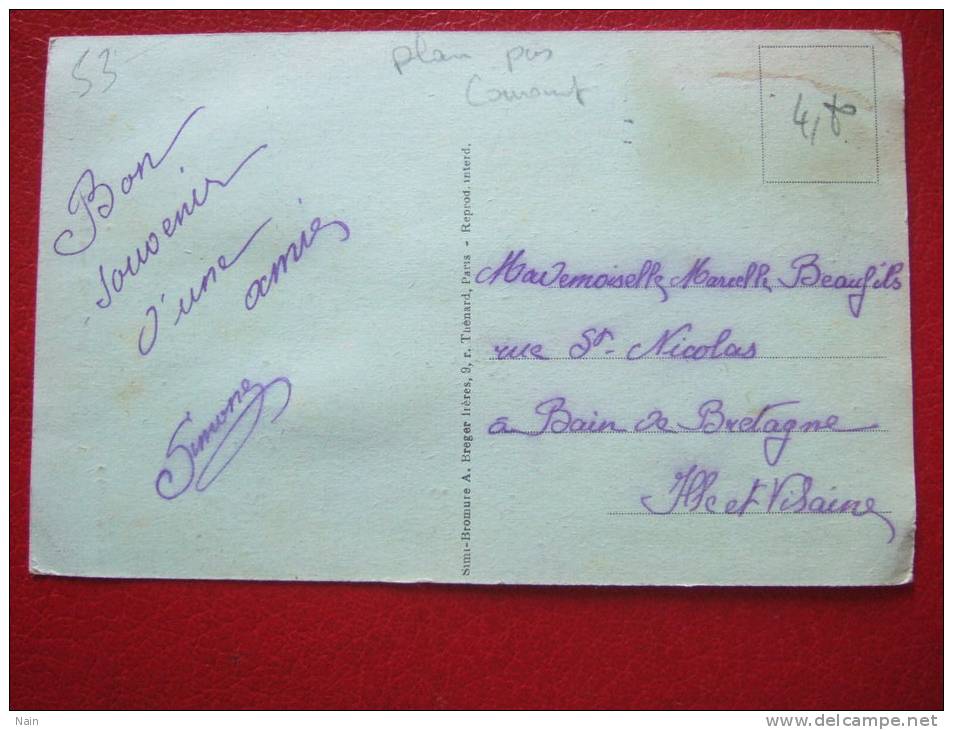 53
plan pas
Courant
Bon
souvenir
d'une
amie
Simone
Simi-Bromure A. Breger frères, 9, r. Thénard, Paris - Reprod. interd.
Mademoiselle Marcelle Beaufils
rue St- Nicolas
à Bain de Bretagne
Ille et Vilaine
Nain
www.delcampe.net